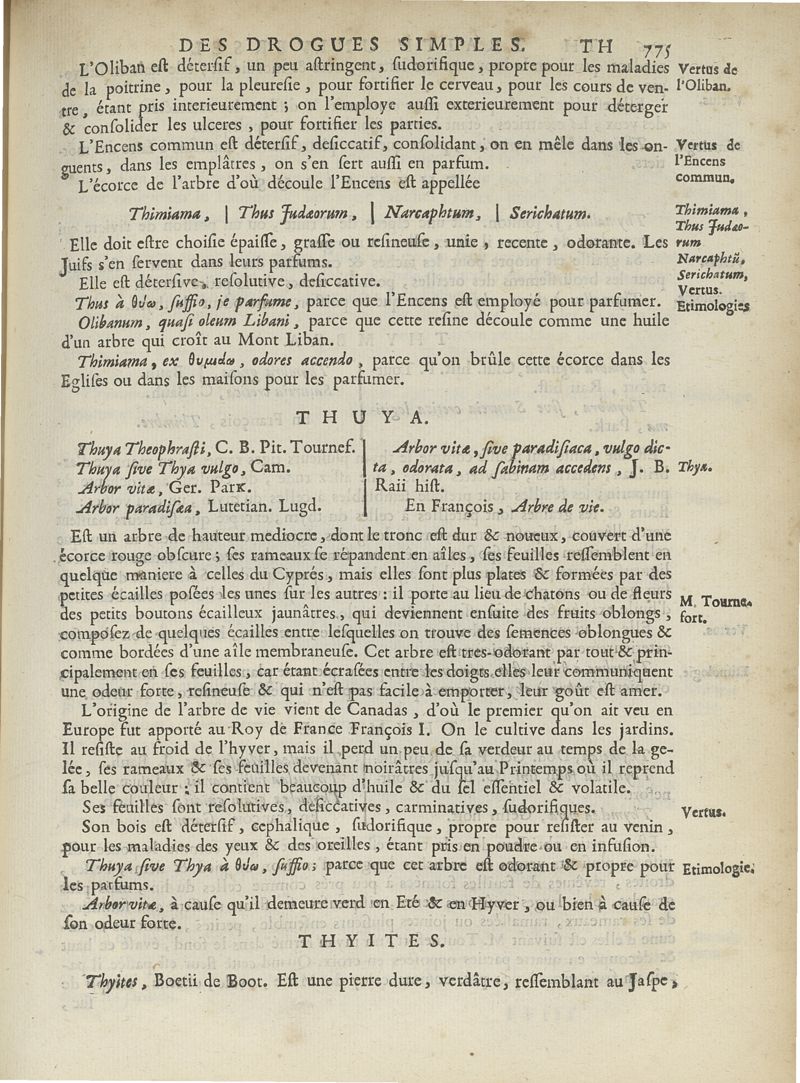 DES DROGUES SIMPLES. TH 775
L'Oliban eſt déterſif, un peu aſtringent, ſudorifique, propre pour les maladies
de la poitrine, pour la pleureſie, pour fortifier le cerveau, pour les cours de ven-
tre, étant pris interieurement; on l'employe auſſi exterieurement pour déterger
& conſolider les ulceres, pour fortifier les parties.
Vertus de
l'Oliban.
L'Encens commun eſt déterſif, deſiccatif, conſolidant, on en mêle dans les on-
guents, dans les emplâtres, on s'en ſert auſſi en parfum.
Vertus de
l'Encens
commun.
L'écorce de l'arbre d'où découle l'Encens eſt appellée
Thimiama, | Thus Judæorum, | Narcaphtum, | Serichatum.
Thimiama,
Thus Judæo-
rum
Narcaphtũ,
Serichatum,
Vertus.
Etimologies
Elle doit eſtre choiſie épaiſſe, graſſe ou reſineuſe, unie, recente, odorante. Les
Juifs s'en ſervent dans leurs parfums.
Elle eſt déterſive, reſolutive, deſiccative.
Thus à θύω, ſuffio, je parfume, parce que l'Encens eſt employé pour parfumer.
Olibanum, quaſi oleum Libani, parce que cette reſine découle comme une huile
d'un arbre qui croît au Mont Liban.
Thimiama, ex θυμιάω, odores accendo, parce qu'on brûle cette écorce dans les
Egliſes ou dans les maiſons pour les parfumer.
THUYA.
Thuya Theophraſti, C. B. Pit. Tournef.
Thuya ſive Thya vulgo, Cam.
Arbor vitæ, Ger. Park.
Arbor paradiſæa, Lutetian. Lugd.
Arbor vitæ, ſive paradiſiaca, vulgo dic-
ta, odorata, ad ſabinam accedens, J. B.
Raii hiſt.
En François, Arbre de vie.
Thyæ.
Eſt un arbre de hauteur mediocre, dont le tronc eſt dur & noueux, couvert d'une
écorce rouge obſcure; ſes rameaux ſe répandent en aîles, ſes feuilles reſſemblent en
quelque maniere à celles du Cyprés, mais elles ſont plus plates & formées par des
petites écailles poſées les unes ſur les autres: il porte au lieu de chatons ou de fleurs
des petits boutons écailleux jaunâtres, qui deviennent enſuite des fruits oblongs,
compoſez de quelques écailles entre leſquelles on trouve des ſemences oblongues &
comme bordées d'une aîle membraneuſe. Cet arbre eſt tres-odorant par tout & prin-
cipalement en ſes feuilles, car étant écraſées entre les doigts elles leur communiquent
une odeur forte, reſineuſe & qui n'eſt pas facile à emporter, leur goût eſt amer.
M. Tourne-
fort.
L'origine de l'arbre de vie vient de Canadas, d'où le premier qu'on ait veu en
Europe fut apporté au Roy de France François I. On le cultive dans les jardins.
Il reſiſte au froid de l'hyver, mais il perd un peu de ſa verdeur au temps de la ge-
lée, ſes rameaux & ſes feuilles devenant noirâtres juſqu'au Printemps où il reprend
ſa belle couleur: il contient beaucoup d'huile & du ſel eſſentiel & volatile.
Ses feuilles ſont reſolutives, deſiccatives, carminatives, ſudorifiques.
Vertus.
Son bois eſt déterſif, cephalique, ſudorifique, propre pour reſiſter au venin,
pour les maladies des yeux & des oreilles, étant pris en poudre ou en infuſion.
Thuya ſive Thya à θύω, ſuffio; parce que cet arbre eſt odorant & propre pour
les parfums.
Etimologie.
Arbor vitæ, à cauſe qu'il demeure verd en Eté & en Hyver, ou bien à cauſe de
ſon odeur forte.
THYITES.
Thyites, Boetii de Boot. Eſt une pierre dure, verdâtre, reſſemblant au Jaſpe,